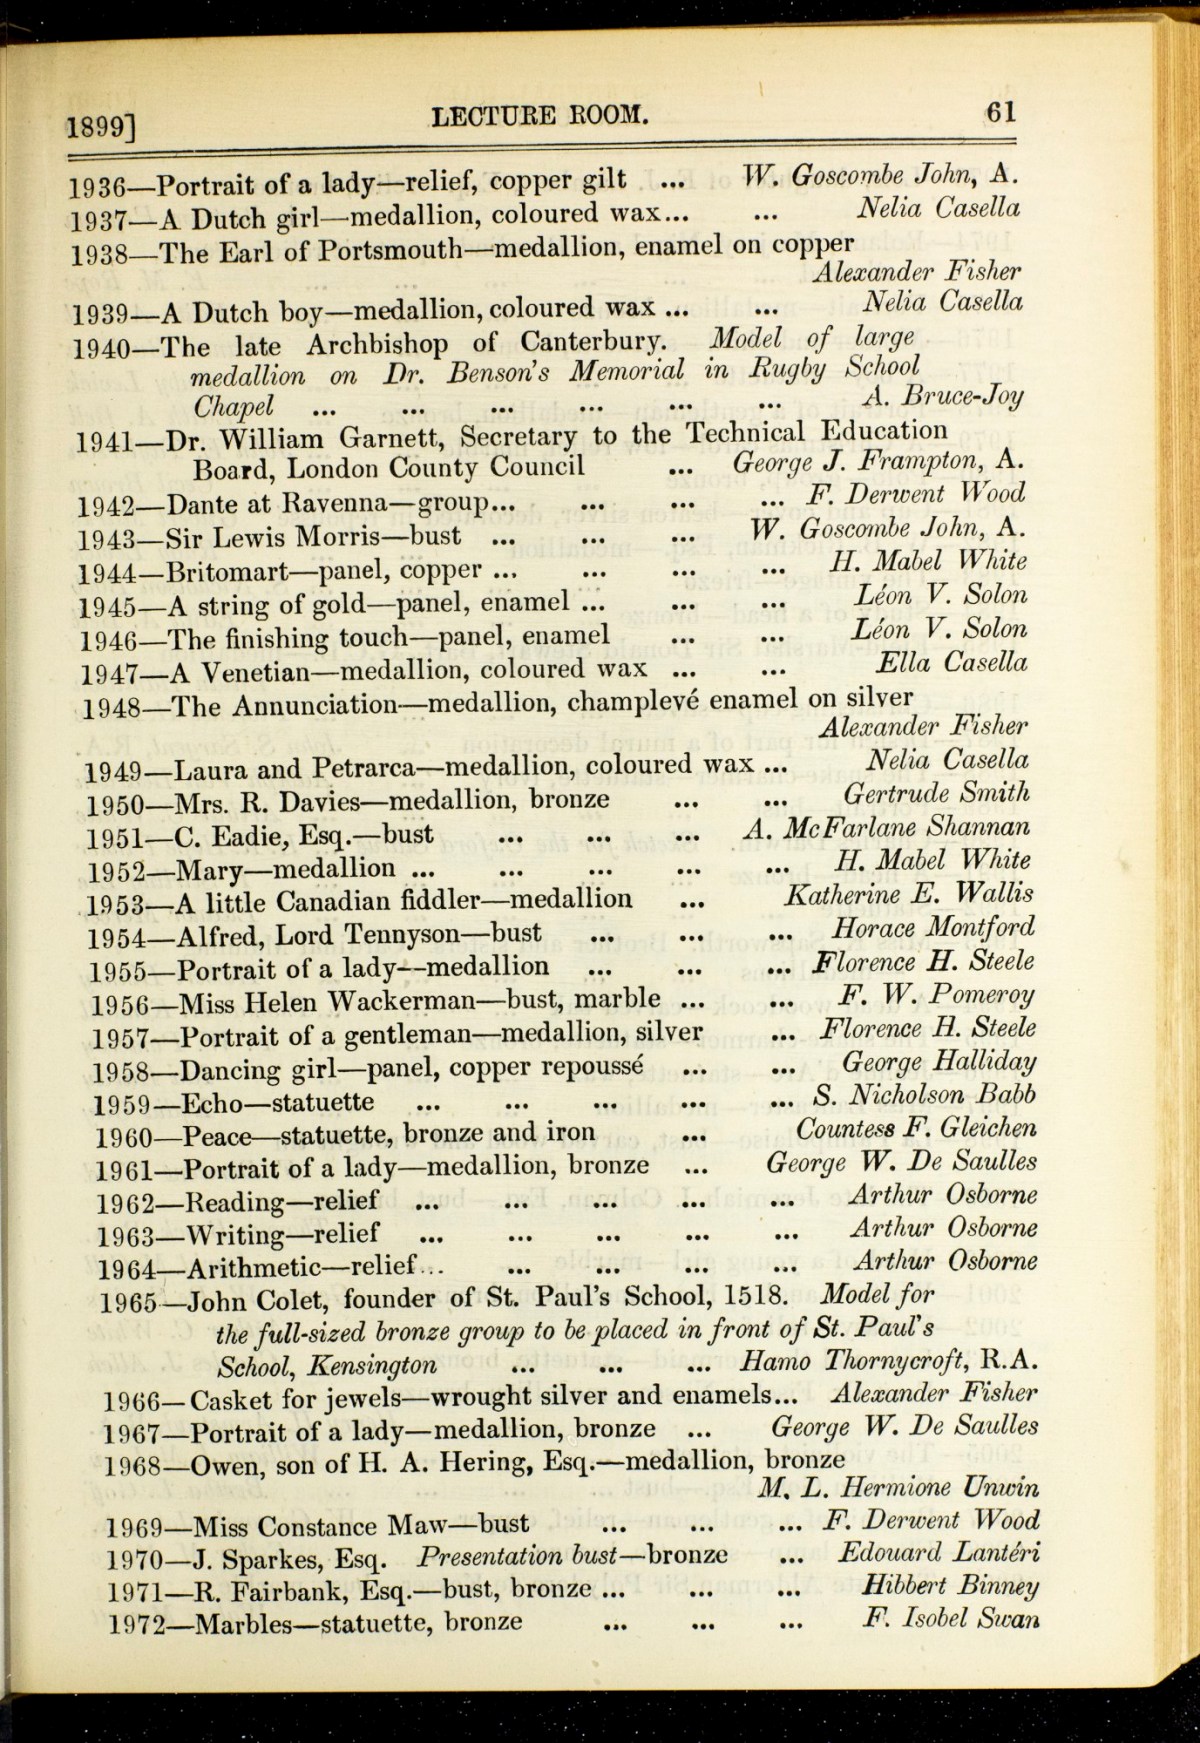 1899] LECTURE ROOM. 61
1936—Portrait of a lady—relief, copper gilt ... W. Goscombe John, A.
1937—A Dutch girl—medallion, coloured wax... ... Nelia Casella
1938—The Earl of Portsmouth—medallion, enamel on copper
Alexander Fisher
1939—A Dutch boy—medallion, coloured wax ... ... Nelia Casella
1940—The late Archbishop of Canterbury. Model of large
medallion on Dr. Benson's Memorial in Rugby School
Chapel ... ... ... ... ... ... A. Bruce-Joy
1941—Dr. William Garnett, Secretary to the Technical Education
Board, London County Council ... George J. Frampton, A.
1942—Dante at Ravenna—group... ... ... ... F. Derwent Wood
1943—Sir Lewis Morris—bust ... ... ... W. Goscombe John, A.
1944—Britomart—panel, copper ... ... ... ... H. Mabel White
1945—A string of gold—panel, enamel ... ... ... Léon V. Solon
1946—The finishing touch—panel, enamel ... ... Léon V. Solon
1947—A Venetian—medallion, coloured wax ... ... Ella Casella
1948—The Annunciation—medallion, champlevé enamel on silver
Alexander Fisher
1949—Laura and Petrarca—medallion, coloured wax ... Nelia Casella
1950—Mrs. R. Davies—medallion, bronze ... ... Gertrude Smith
1951—C. Eadie, Esq.—bust ... ... ... A. McFarlane Shannan
1952—Mary—medallion ... ... ... ... ... H. Mabel White
1953—A little Canadian fiddler—medallion ... Katherine E. Wallis
1954—Alfred, Lord Tennyson—bust ... ... ... Horace Montford
1955—Portrait of a lady—medallion ... ... ... Florence H. Steele
1956—Miss Helen Wackerman—bust, marble ... ... F. W. Pomeroy
1957—Portrait of a gentleman—medallion, silver ... Florence H. Steele
1958—Dancing girl—panel, copper repoussé ... ... George Halliday
1959—Echo—statuette ... ... ... ... ... S. Nicholson Babb
1960—Peace—statuette, bronze and iron ... Countess F. Gleichen
1961—Portrait of a lady—medallion, bronze ... George W. De Saulles
1962—Reading—relief ... ... ... ... ... Arthur Osborne
1963—Writing—relief ... ... ... ... ... Arthur Osborne
1964—Arithmetic—relief... ... ... ... ... Arthur Osborne
1965—John Colet, founder of St. Paul's School, 1518. Model for
the full-sized bronze group to be placed in front of St. Paul's
School, Kensington ... ... ... Hamo Thornycroft, R.A.
1966—Casket for jewels—wrought silver and enamels... Alexander Fisher
1967—Portrait of a lady—medallion, bronze ... George W. De Saulles
1968—Owen, son of H. A. Hering, Esq.—medallion, bronze
M. L. Hermione Unwin
1969—Miss Constance Maw—bust ... ... ... F. Derwent Wood
1970—J. Sparkes, Esq. Presentation bust—bronze ... Edouard Lantéri
1971—R. Fairbank, Esq.—bust, bronze ... ... ... Hibbert Binney
1972—Marbles—statuette, bronze ... ... ... F. Isobel Swan